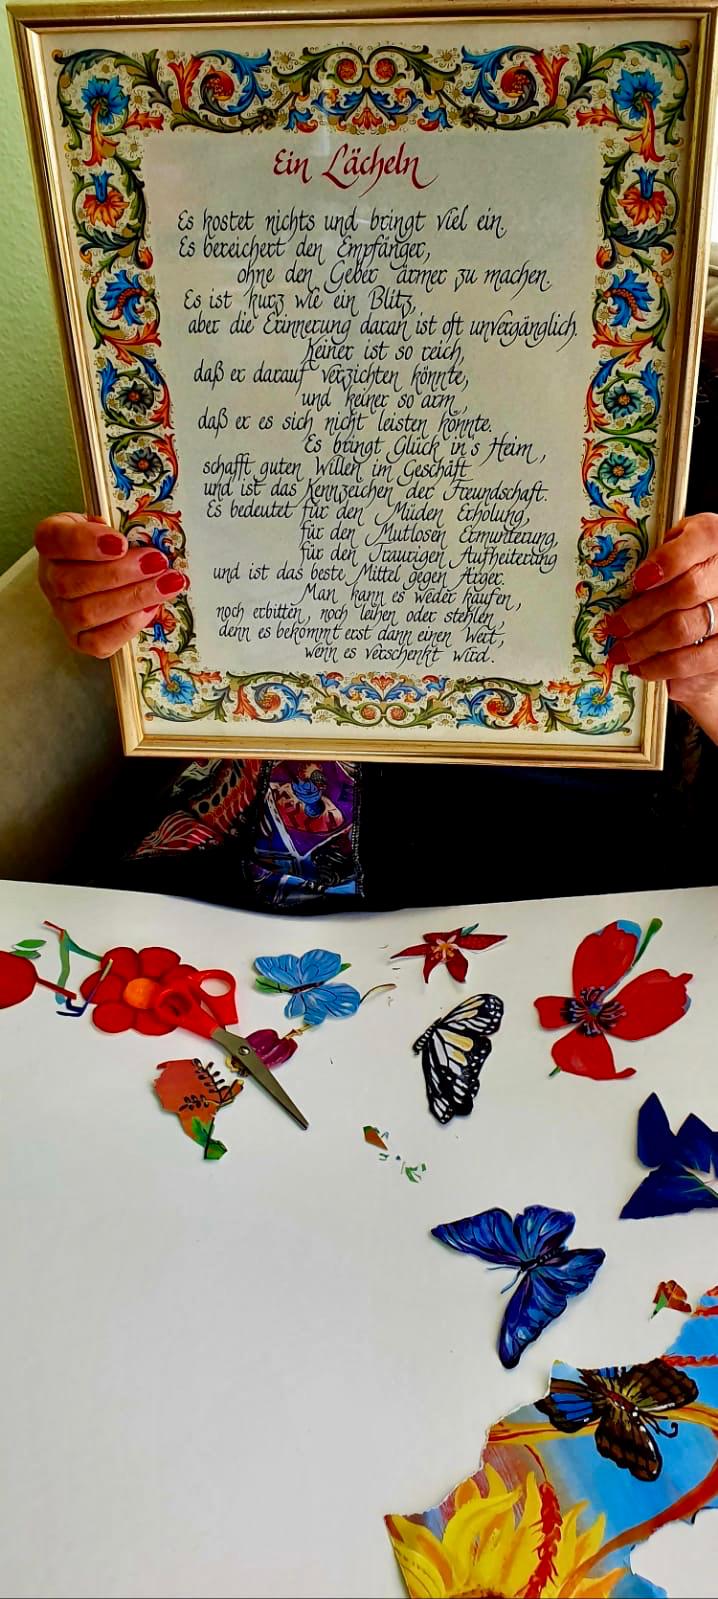 Ein Lächeln
Es kostet nichts und bringt viel ein.
Es bereichert den Empfänger,
ohne den Geber ärmer zu machen.
Es ist kurz wie ein Blitz,
aber die Erinnerung daran ist oft unvergänglich.
Keiner ist so reich,
daß er darauf verzichten könnte,
und keiner so arm,
daß er es sich nicht leisten könnte.
Es bringt Glück in's Heim,
schafft guten Willen im Geschäft
und ist das Kennzeichen der Freundschaft.
Es bedeutet für den Müden Erholung,
für den Mutlosen Ermunterung,
für den Traurigen Aufheiterung
und ist das beste Mittel gegen Ärger.
Man kann es weder kaufen,
noch erbitten, noch leihen oder stehlen,
denn es bekommt erst dann einen Wert,
wenn es verschenkt wird.